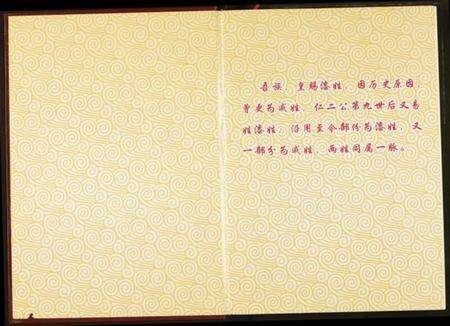 吾族，皇赐漆姓，因历史原因，
曾更为戚姓，仁二公第九世后又易
姓漆姓，沿用至今部份为漆姓，又
一部分为戚姓，两姓同属一脉。